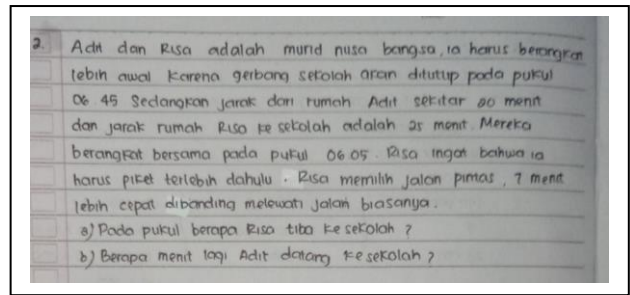 2. Adit dan Risa adalah murid nusa bangsa, ia harus berangkat
lebih awal karena gerbang sekolah akan ditutup pada pukul
06 45 Sedangkan jarak dari rumah Adit sekitar 20 menit
dan jarak rumah Risa ke sekolah adalah 25 menit. Mereka
berangkat bersama pada pukul 06.05. Risa ingat bahwa ia
harus piket terlebih dahulu. Risa memilih jalan pintas, 7 menit
lebih cepat dibanding melewati jalan biasanya.
a) Pada pukul berapa Risa tiba ke sekolah ?
b) Berapa menit lagi Adit datang ke sekolah ?